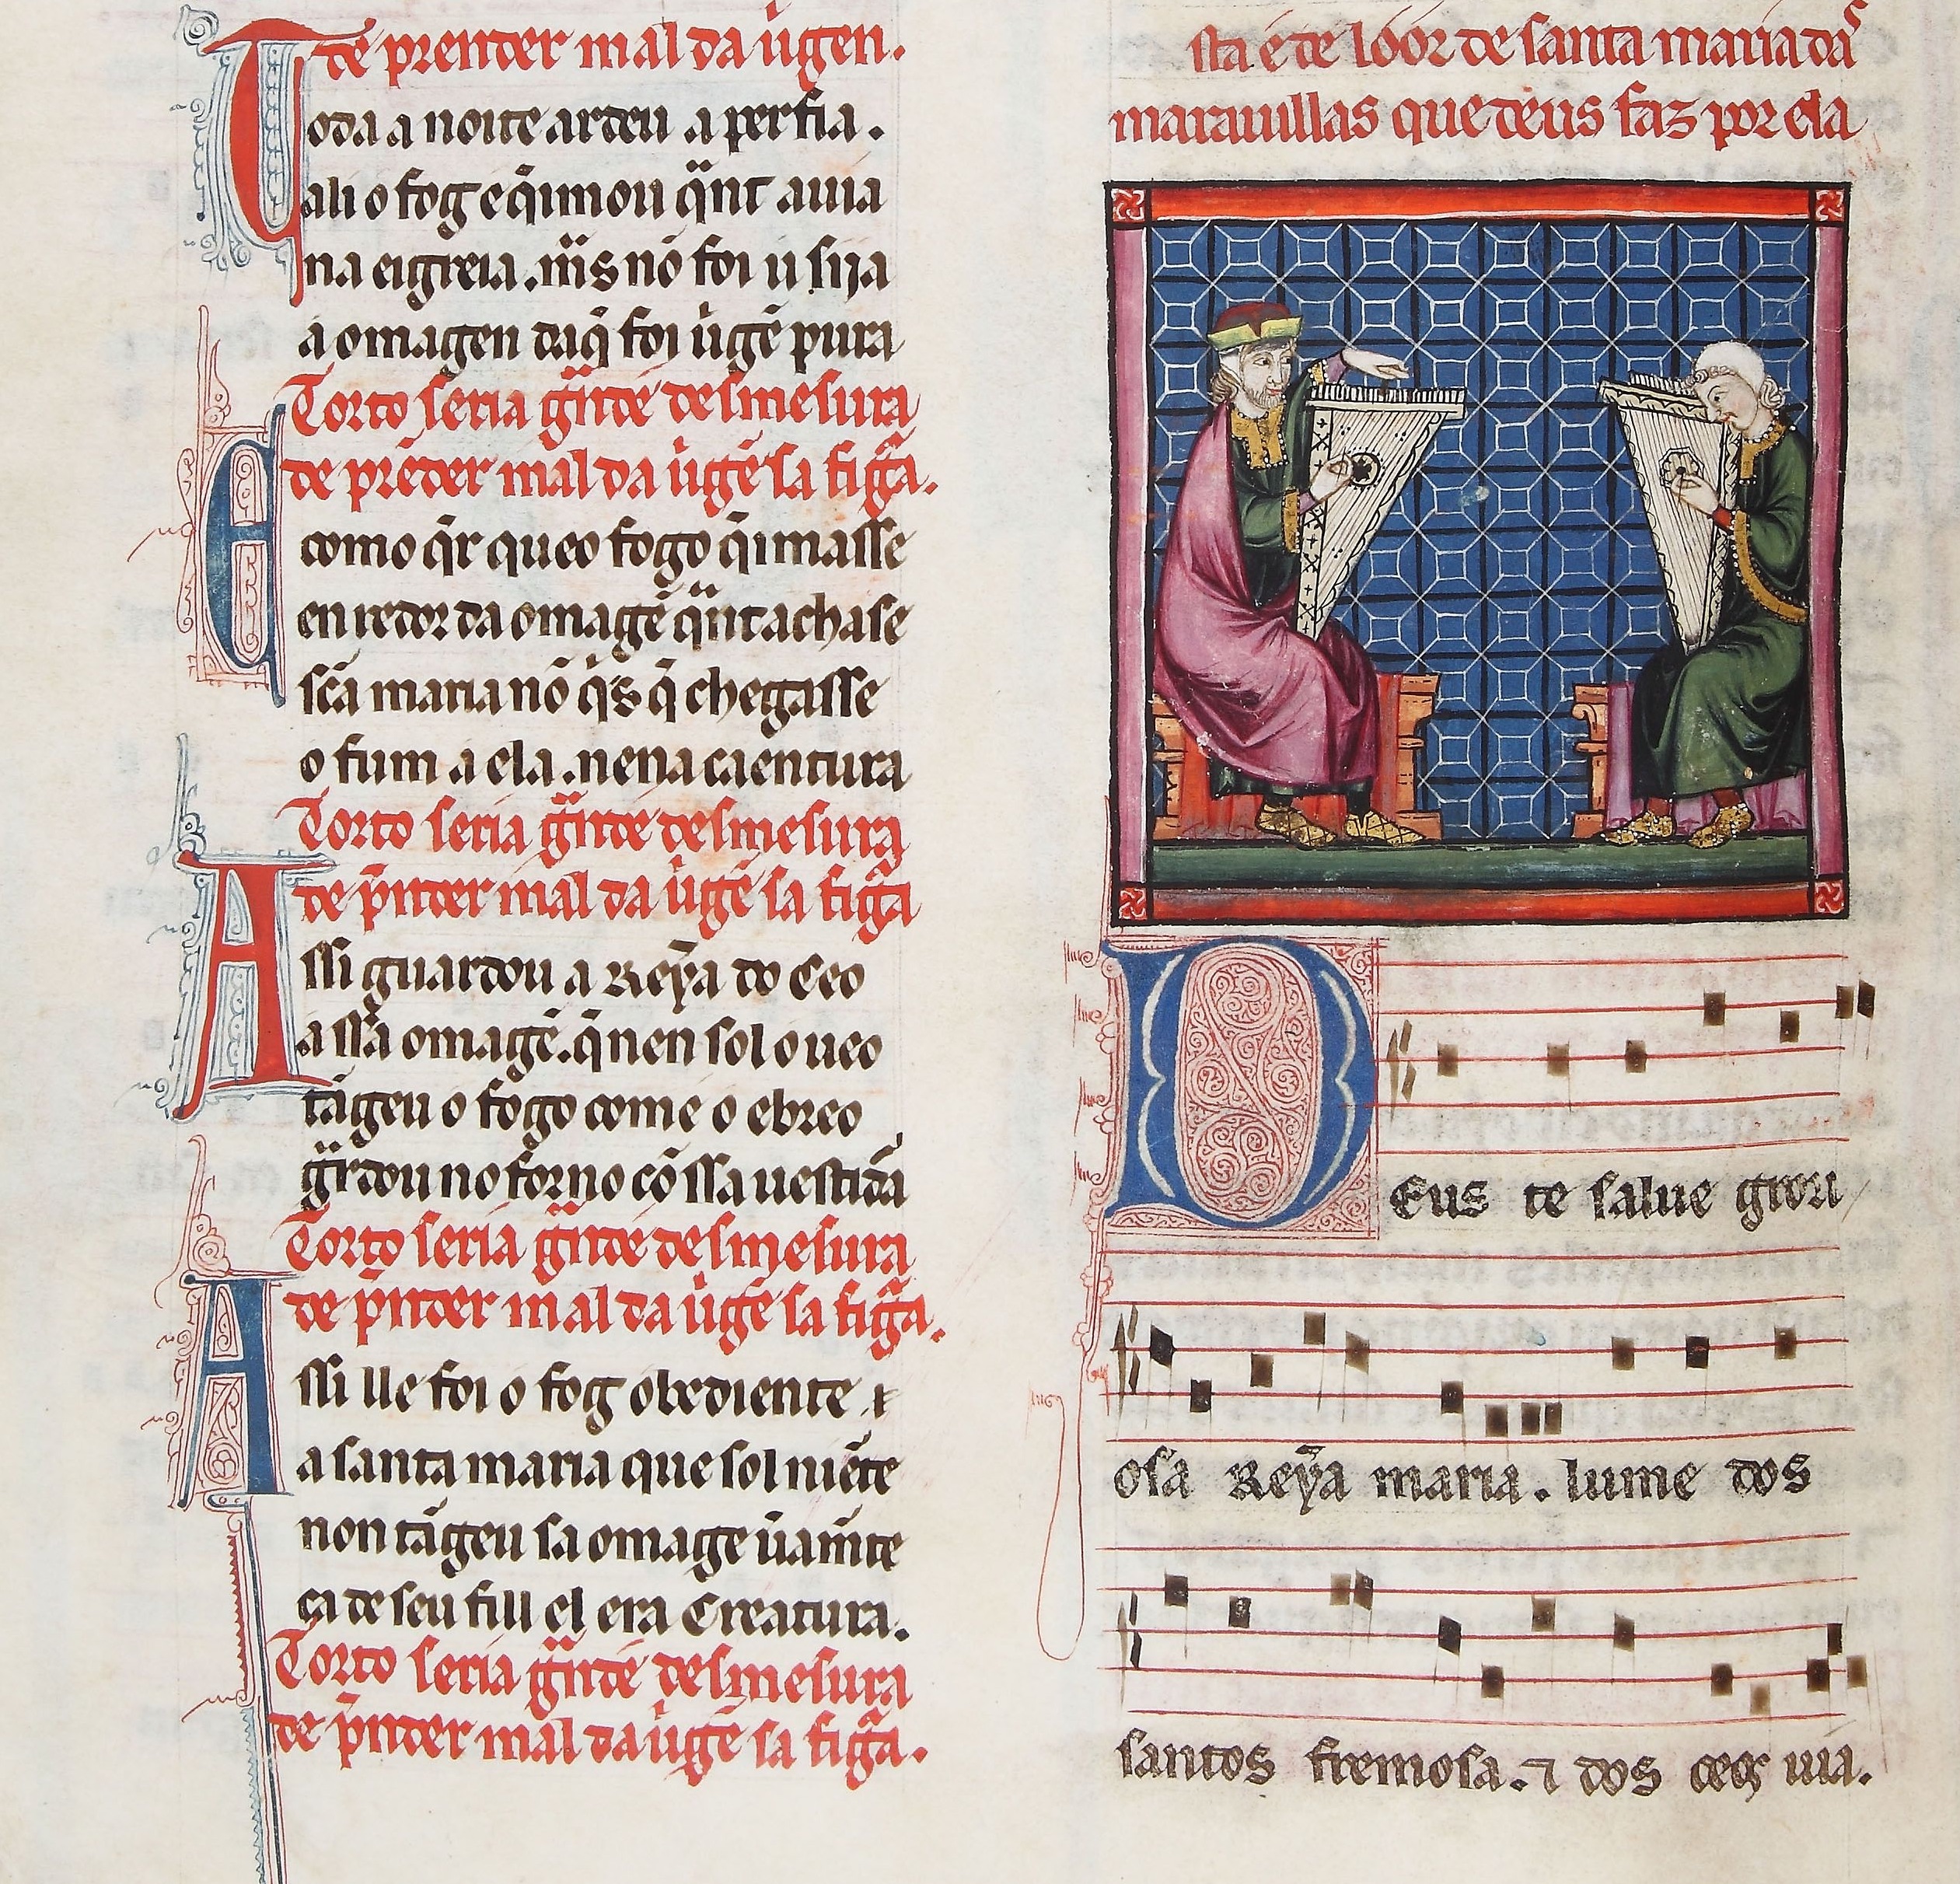 de prender mal da uirgen.
Toda a noite ardeu a perfia.
ali o fog e q̄imou q̃nt auia
na eigreia. mais nō foi u siia
a omagen daq̄ foi uirgē pura
Torto seria grãde desmesura
de prēder mal da uirgē sa figũa.
E como q̄r queo fogo q̄imasse
en redor da omagē q̃nt achase
scā maria nō q's q̄ chegasse
o fum a ela. nena caentura
Torto seria grãde desmesura
de p̄nder mal da uirgē sa figũa
Assi guardou a Reỹa do Ceo
a ssa omagē. q̄ nen sol o ueo
tāgeu o fogo come o ebreo
gũrdou no forno cō ssa uestidã
Torto seria grãde desmesura
de p̄nder mal da uirgē sa figũa.
Assi lle foi o fog obediente
a santa maria que sol niēte
non tāgeu sa omage uamẽte
ca de seu fill el era Creatura.
Torto seria grãde desmesura
de p̄nder mal da uirgē sa figũa.
sta é de loor de santa maria das
marauillas que deus faz por ela
DEus te salue grori
osa Reỹa maria. lume dos
santos fremosa. ⁊ dos ceos uia.